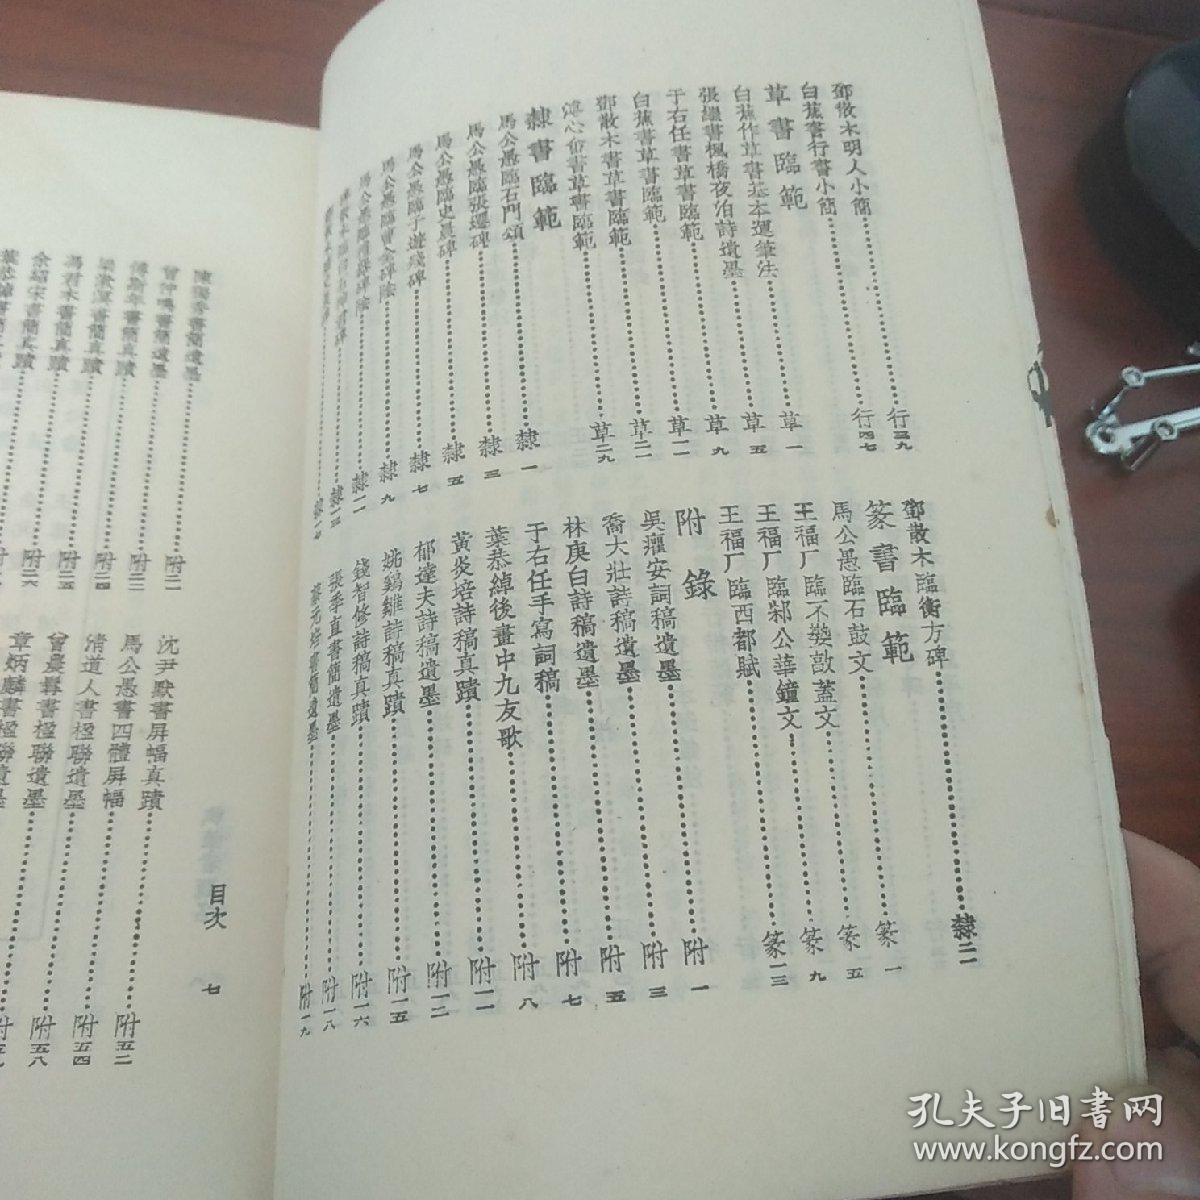 鄧散木明人小簡……行三九
白蕉書行書小簡……行四七
草書臨範
白蕉作草書基本運筆法……草一
張繼書楓橋夜泊詩遺墨……草五
于右任書草書臨範……草九
白蕉書草書臨範……草一一
鄧散木書草書臨範……草二一
溥心畬書草書臨範……草二九
隸書臨範
馬公愚臨石門頌……隸一
馬公愚臨張遷碑……隸三
馬公愚臨史晨碑……隸五
馬公愚臨子游殘碑……隸七
馬公愚臨曹全碑陰……隸九
鄧散木臨衡方碑……隸二一
篆書臨範
馬公愚臨石鼓文……篆一
王福厂臨不𡢁敦蓋文……篆五
王福厂臨邾公華鐘文……篆九
王福厂臨西都賦……篆一三
附錄
吳癯安詞稿遺墨……附一
喬大壯詩稿遺墨……附三
林庚白詩稿遺墨……附五
于右任手寫詞稿……附七
葉恭綽後畫中九友歌……附八
黃炎培詩稿真蹟……附一一
郁達夫詩稿遺墨……附一二
姚鵷雛詩稿真蹟……附一五
錢智修詩稿真蹟……附一六
張季直書簡遺墨……附一八
蔡元培書簡遺墨……附一九
陳獨秀書簡遺墨……附二一
曾仲鳴書簡遺墨……附二二
傅斯年書簡真蹟……附二四
梁漱溟書簡真蹟……附二五
馮君木書簡真蹟……附二六
余紹宋書簡真蹟……附
沈尹默書屏幅真蹟……附五二
馬公愚書四體屏幅……附五四
清道人書楹聯遺墨……附五八
曾農髯書楹聯遺墨……附五九
章炳麟書楹聯遺墨
目次
七
孔夫子旧书网
www.kongfz.com